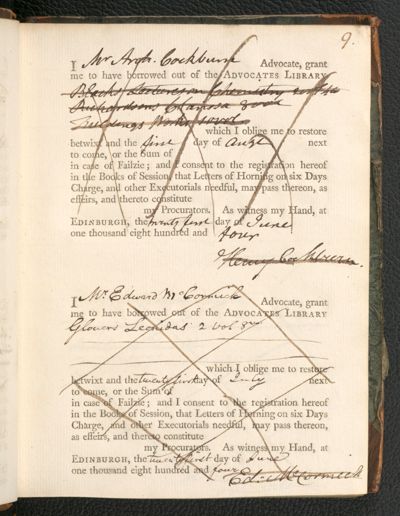 9.
I Mr Arch. Cockburn Advocate, grant
me to have borrowed out of the ADVOCATES LIBRARY
Blacks Lectures on Chemistry
Richardsons Clarissa 8 vol
Fieldings Works
which I oblige me to restore
betwixt and the first day of Augt next
to come, or the Sum of
in case of Failzie; and I consent to the registration hereof
in the Books of Session, that Letters of Horning on six Days
Charge, and other Executorials needful, may pass thereon, as
effeirs, and thereto constitute
my Procurators. As witness my Hand, at
EDINBURGH, the twenty first day of June
one thousand eight hundred and four
Henry Cockburn.
I Mr Edward McCormick Advocate, grant
me to have borrowed out of the ADVOCATES LIBRARY
Glovers Leonidas 2 vol 8vo
which I oblige me to restore
betwixt and the twenty first day of July next
to come, or the Sum of
in case of Failzie; and I consent to the registration hereof
in the Books of Session, that Letters of Horning on six Days
Charge, and other Executorials needful, may pass thereon,
as effeirs, and thereto constitute
my Procurators. As witness my Hand, at
EDINBURGH, the twenty first day of June
one thousand eight hundred and four
Edw. McCormick